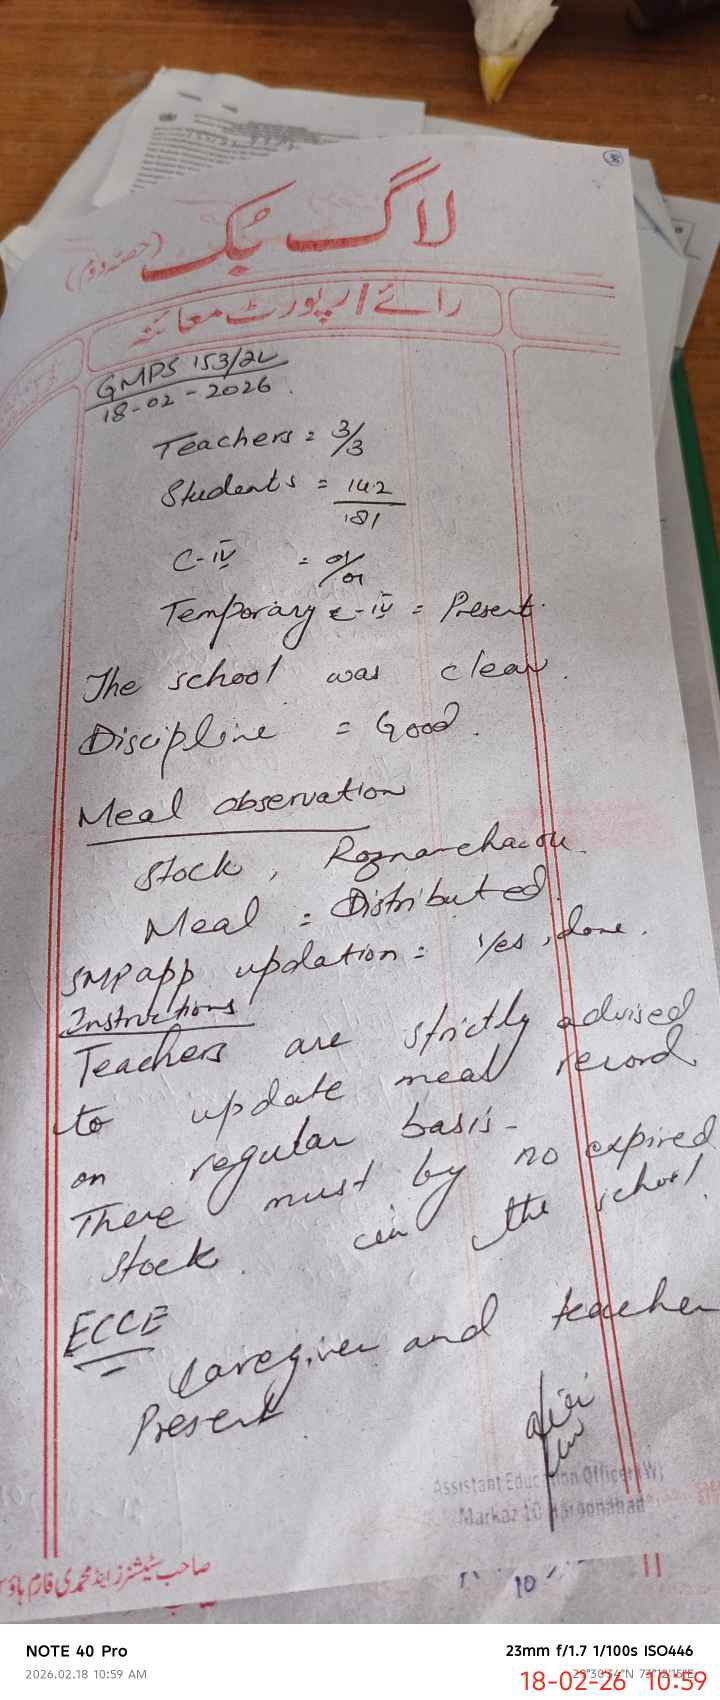 لاگ بک (حصہ دوم)
رائے / رپورٹ معائنہ
GMPS 153/2L
18-02-2026.
Teachers = 3/3
Students = 142/181
C-IV = 01/01
Temporary C-IV = Present.
The school was clean.
Discipline = Good.
Meal observation
Stock, Roznamcha
Meal = Distributed.
SMP app updation = Yes, done.
Instructions
Teachers are strictly advised
to update meal record
on regular basis-
There must by no expired
stock in the school.
ECCE
Caregiver and teacher
Present
Assistant Education Officer (W)
Markaz 10 Haroonabad
10
11
NOTE 40 Pro
2026.02.18 10:59 AM
23mm f/1.7 1/100s ISO446
18-02-26 10:59